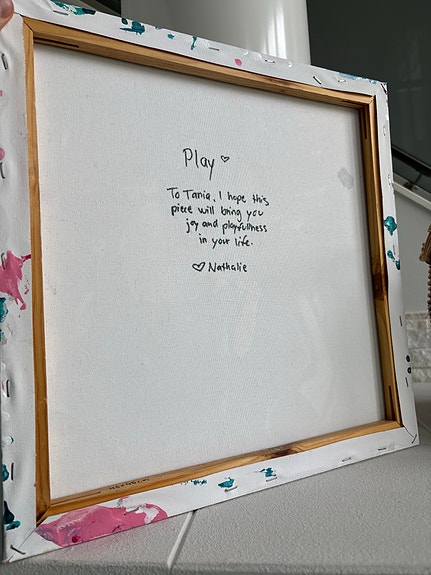 Play ♡
To Tania, I hope this
piece will bring you
joy and playfulness
in your life.
♡ Nathalie